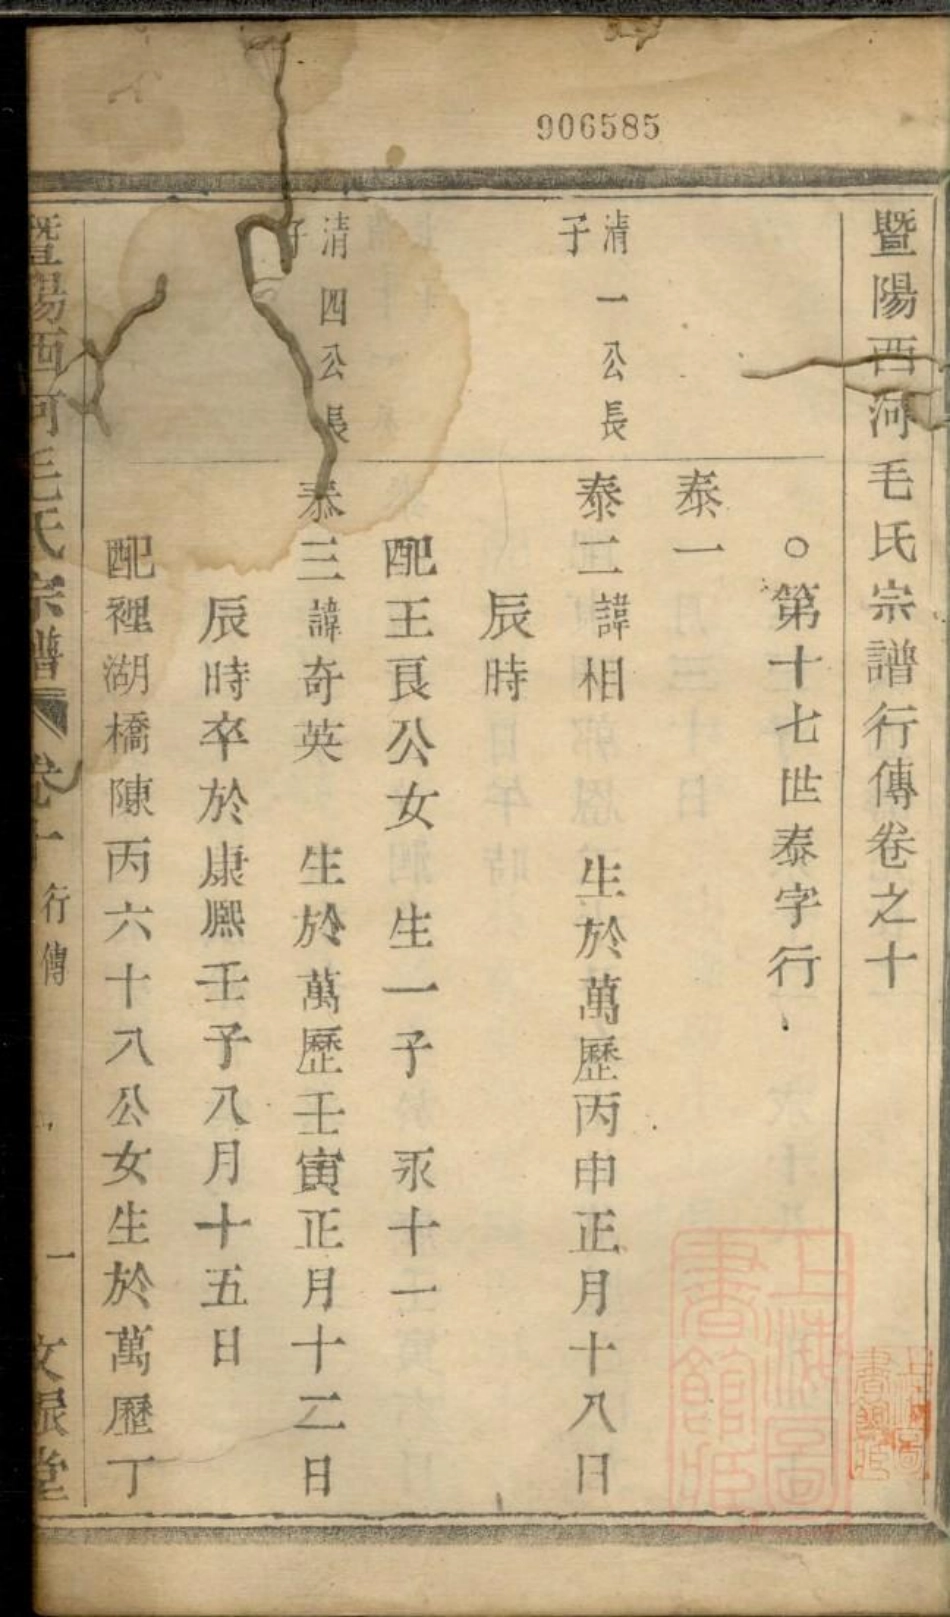 906585
暨陽西河毛氏宗譜行傳卷之十
○第十七世泰字行
泰一
清一公長
子
泰二諱相 生於萬歷丙申正月十八日
辰時
配王良公女 生一子 永十一
清四公長
子
泰三諱奇英 生於萬歷壬寅正月十二日
辰時卒於康熈壬子八月十五日
配裡湖橋陳丙六十八公女生於萬歷丁
暨陽西河毛氏宗譜 卷十 行傳 一
上海圖
書館藏
上海圖
書館藏